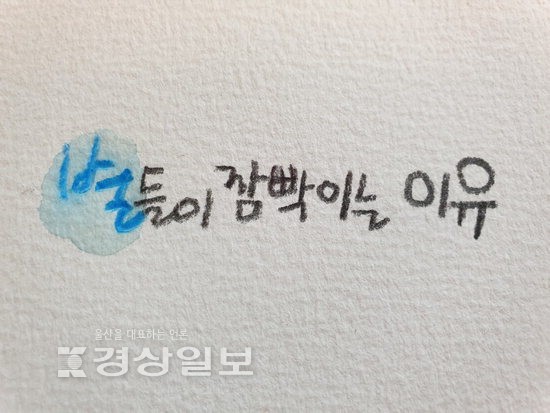 별들이 깜빡이는 이유
울산을 대표하는 언론
경상일보